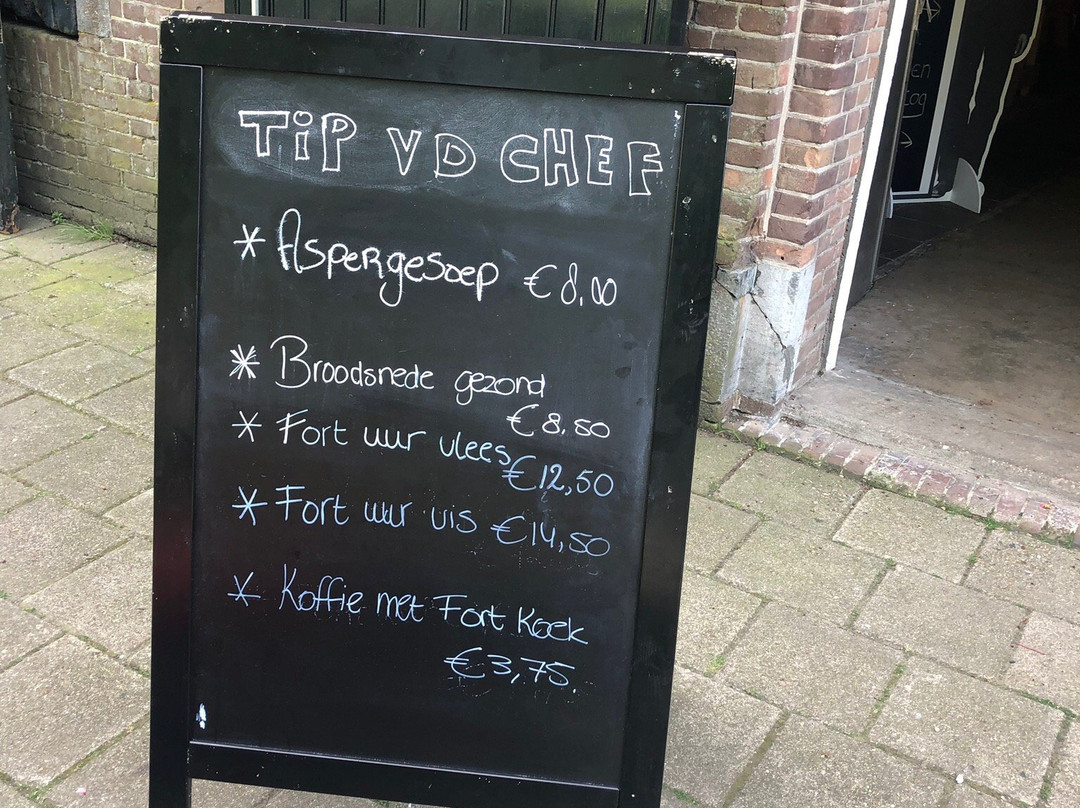 TiP VD CHEF
* Aspergesoep €8,00
* Broodsnede gezond
€8,50
* Fort uur vlees €12,50
* Fort uur vis €14,50
* Koffie met Fort Koek
€3,75.
en